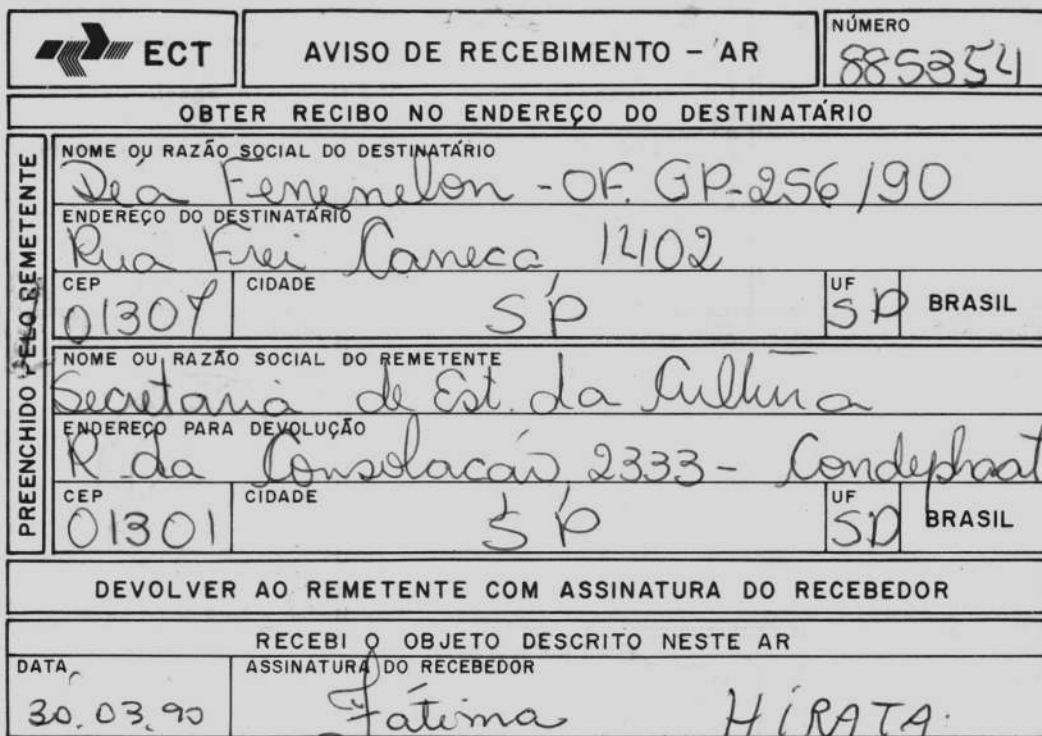 ECT
AVISO DE RECEBIMENTO - AR
NÚMERO
885354
OBTER RECIBO NO ENDEREÇO DO DESTINATÁRIO
PREENCHIDO PELO REMETENTE
NOME OU RAZÃO SOCIAL DO DESTINATÁRIO
Déa Fenenelon - OF. GP-256/90
ENDEREÇO DO DESTINATÁRIO
Rua Frei Caneca 1402
CEP
01307
CIDADE
SP
UF
SP
BRASIL
NOME OU RAZÃO SOCIAL DO REMETENTE
Secretaria de Est. da Cultura
ENDEREÇO PARA DEVOLUÇÃO
R da Consolacão, 2333 - Condephaat
CEP
01301
CIDADE
SP
UF
SP
BRASIL
DEVOLVER AO REMETENTE COM ASSINATURA DO RECEBEDOR
RECEBI O OBJETO DESCRITO NESTE AR
DATA
30.03.90
ASSINATURA DO RECEBEDOR
Fátima HIRATA.